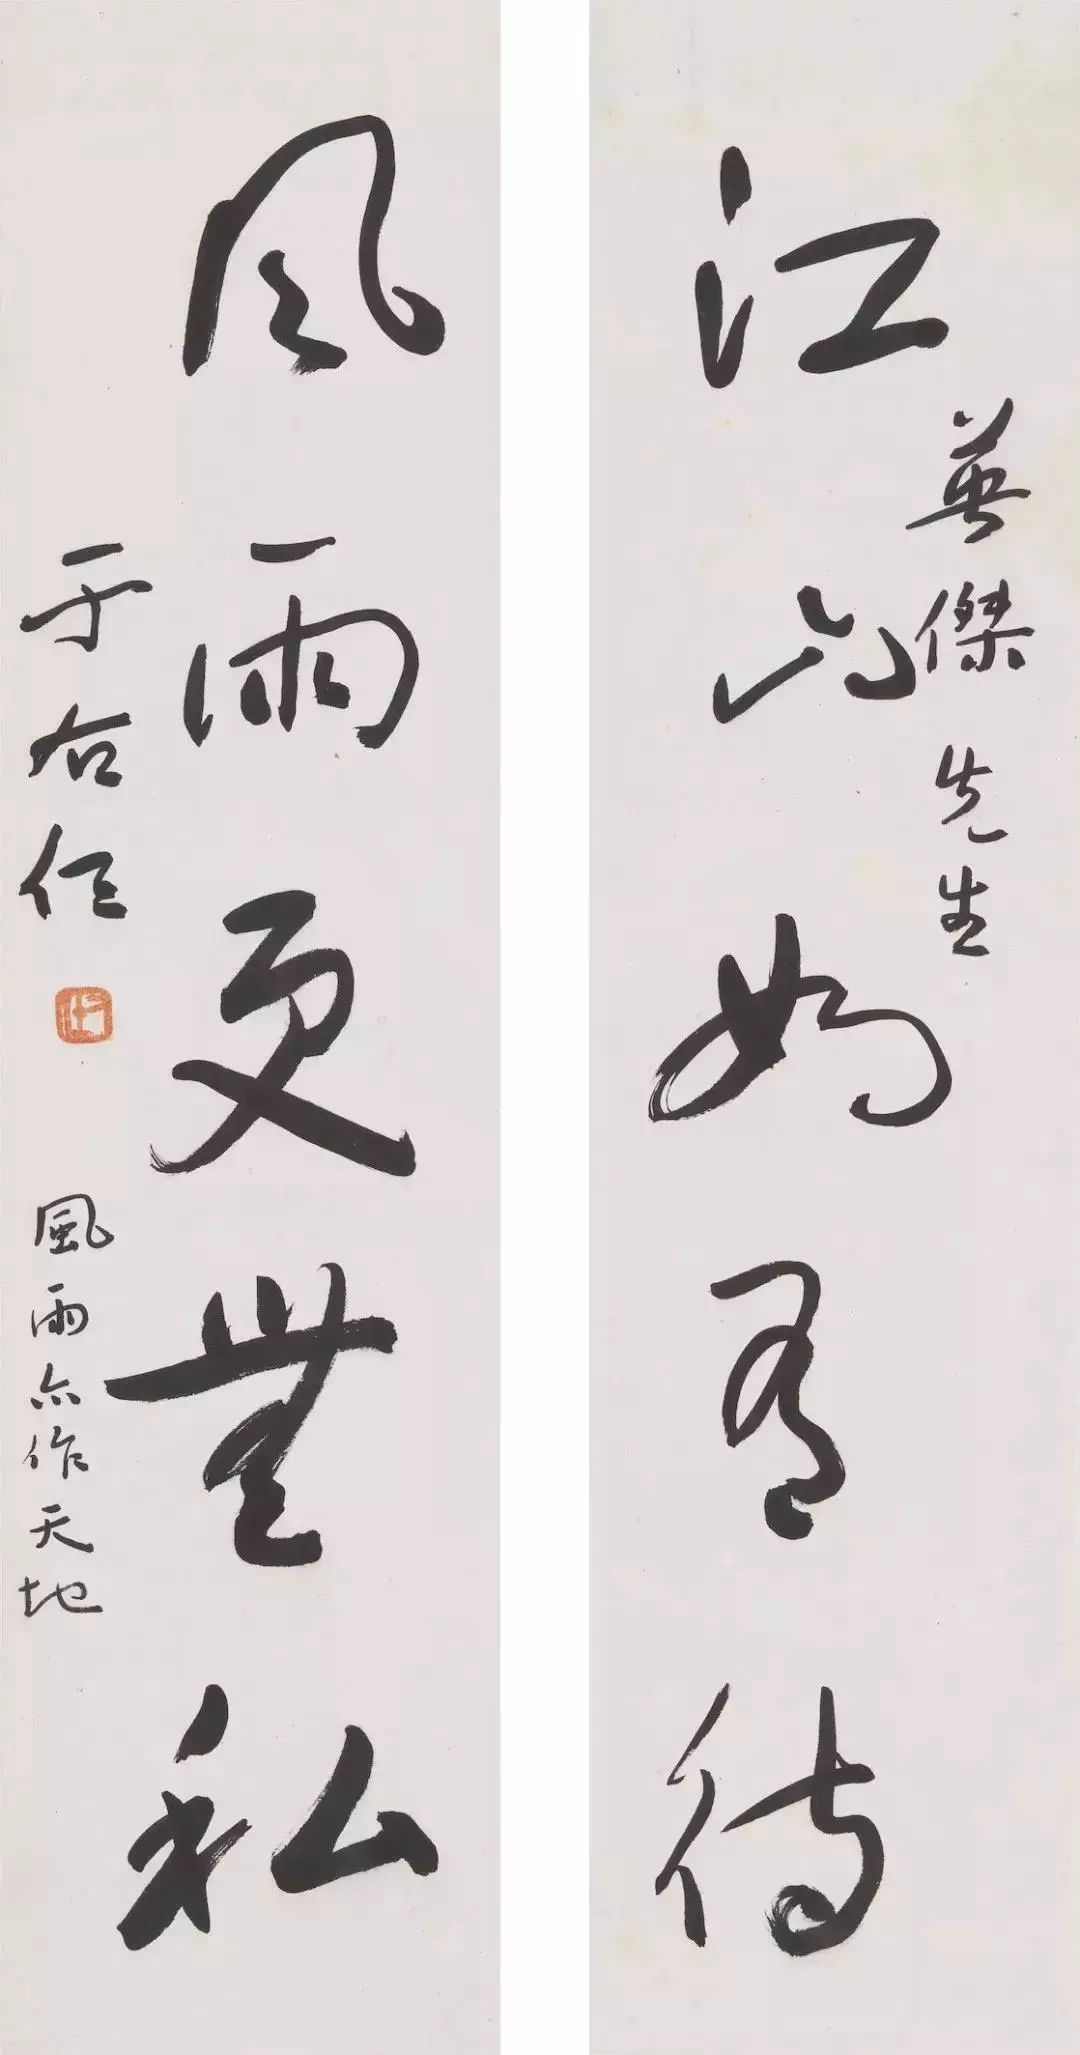 英傑先生
江山如有待
風雨更無私
于右任
風雨亦作天地